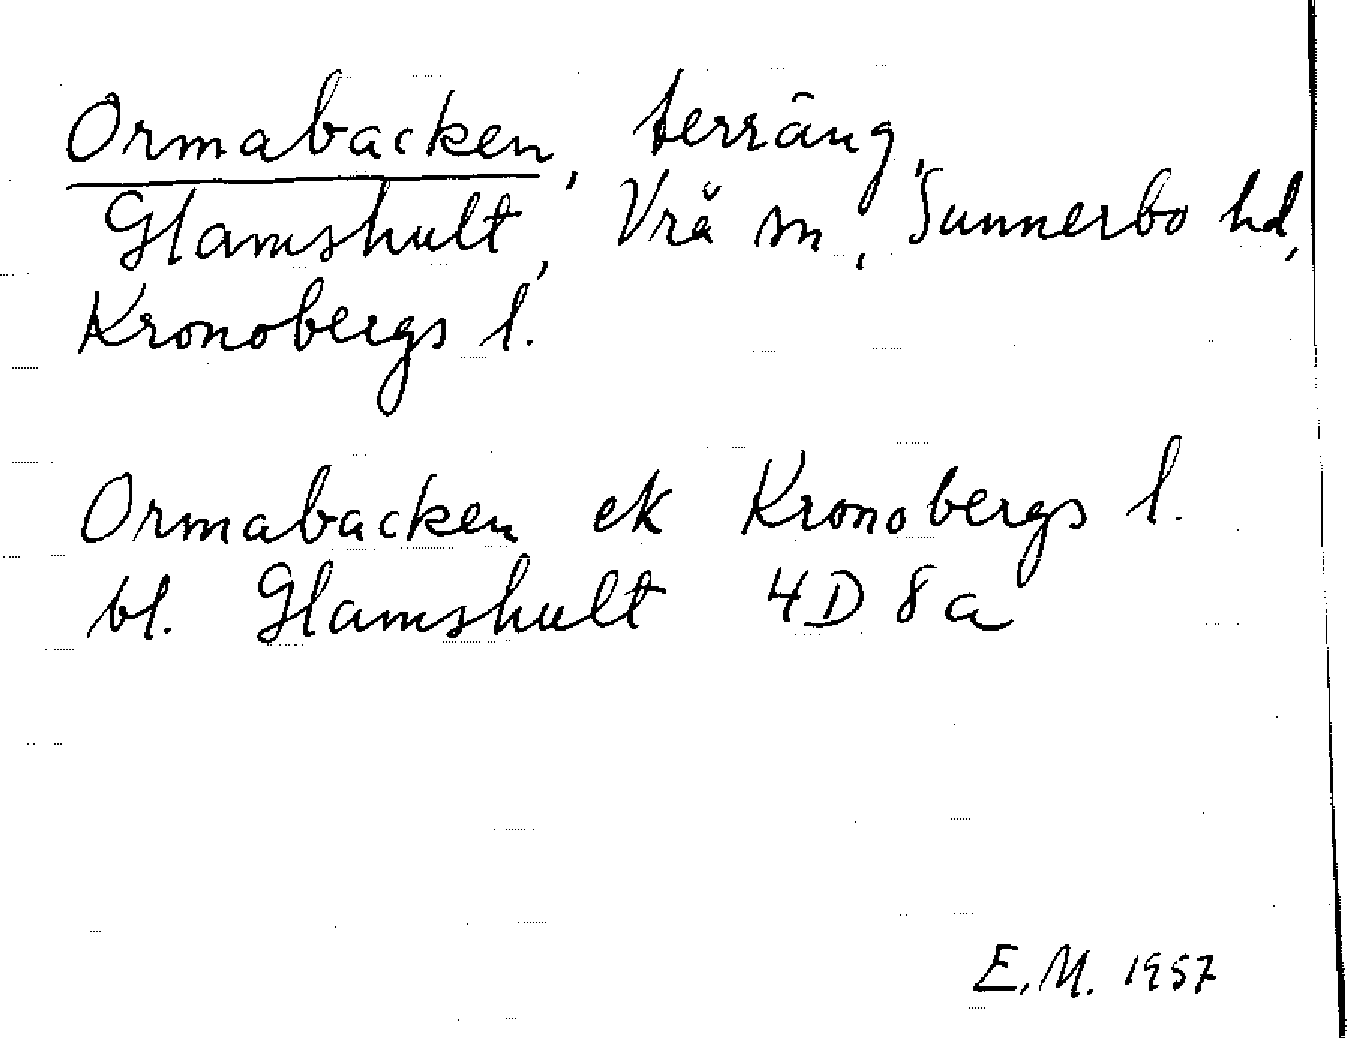 Ormabacken, terräng,
Glamshult, Vrå sn, Sunnerbo hd,
Kronobergs l.
Ormabacken ek Kronobergs l.
bl. Glamshult 4D 8a
E.M. 1957